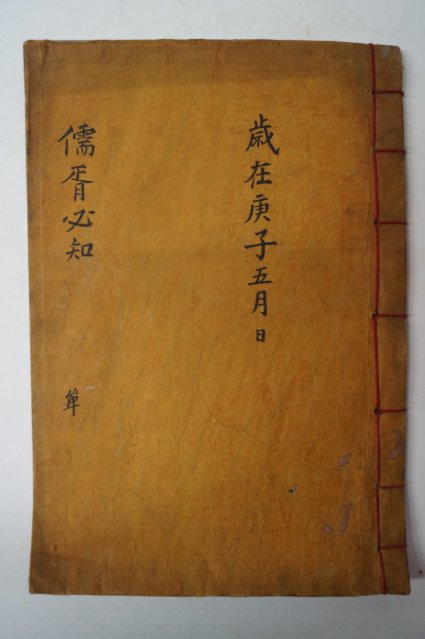 歲在庚子五月 日
儒胥必知
單